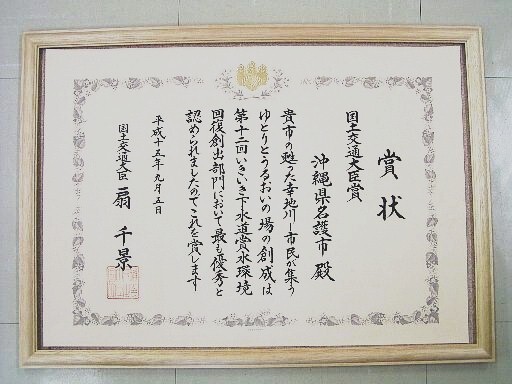 賞状
国土交通大臣賞
沖縄県名護市殿
貴市の甦った幸地川―市民が集う
ゆとりとうるおいの場の創成は
第十二回いきいき下水道賞水環境
回復創出部門において最も優秀と
認められましたのでこれを賞します
平成十五年九月五日
国土交通大臣 扇千景